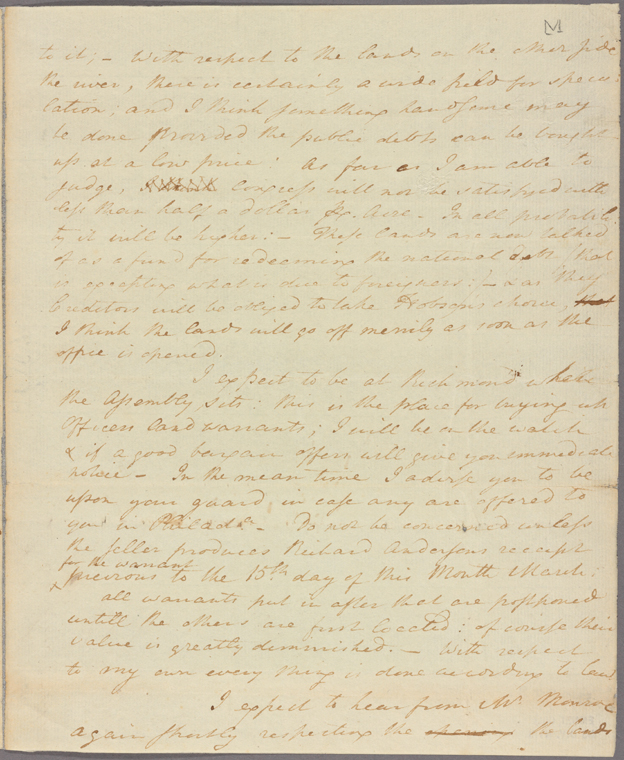 M
to it; – With respect to the lands on the other side
the river, there is certainly a wide field for specu:
lation; and I think something handsome may
be done provided the public debts can be bought
up at a low price: As far as I am able to
judge, Congress will not be satisfyed with
less than half a dollar pr. Acre – In all probabili:
ty it will be higher: – These lands are now talked
of as a fund for redeeming the national debt (that
is excepting what is due to foreigners:) – & as they
Creditors will be obliged to take Hobsons choice,
I think the lands will go off merrily as soon as the
office is opened.
I expect to be at Richmond when
the Assembly sits: this is the place for buying up
Officers land warrants; I will be on the watch
& if a good bargain offers will give you immediate
notice – In the mean time I advise you to be
upon your guard in case any are offered to
you in Philada. – Do not be concerned unless
the seller produces Richard Andersons receipt
for the warrant
previous to the 15th day of this Month March:
all warrants put in after that are postponed
untill the others are first located: of course their
value is greatly diminished. – With respect
to my own every thing is done according to law
I expect to hear from Mr. Monroe
again shortly respecting the opening the lands